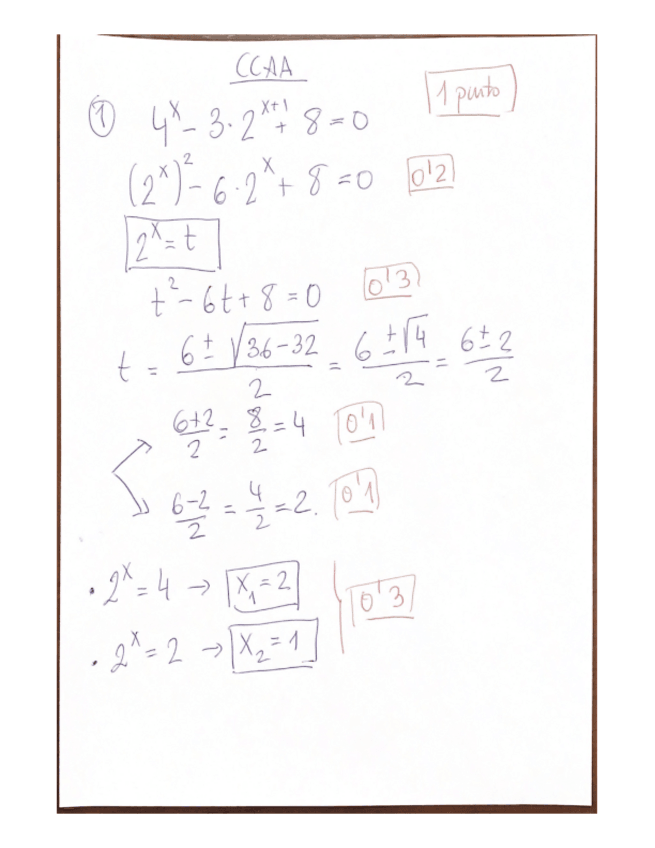 CCAA
1 punto
① 4^x - 3·2^(x+1) + 8 = 0
(2^x)^2 - 6·2^x + 8 = 0 0'2
2^x = t
t^2 - 6t + 8 = 0 0'3
t = (6 ± √(36-32))/2 = (6 ± √4)/2 = (6 ± 2)/2
(6+2)/2 = 8/2 = 4 0'1
(6-2)/2 = 4/2 = 2. 0'1
· 2^x = 4 → x₁ = 2
0'3
· 2^x = 2 → x₂ = 1